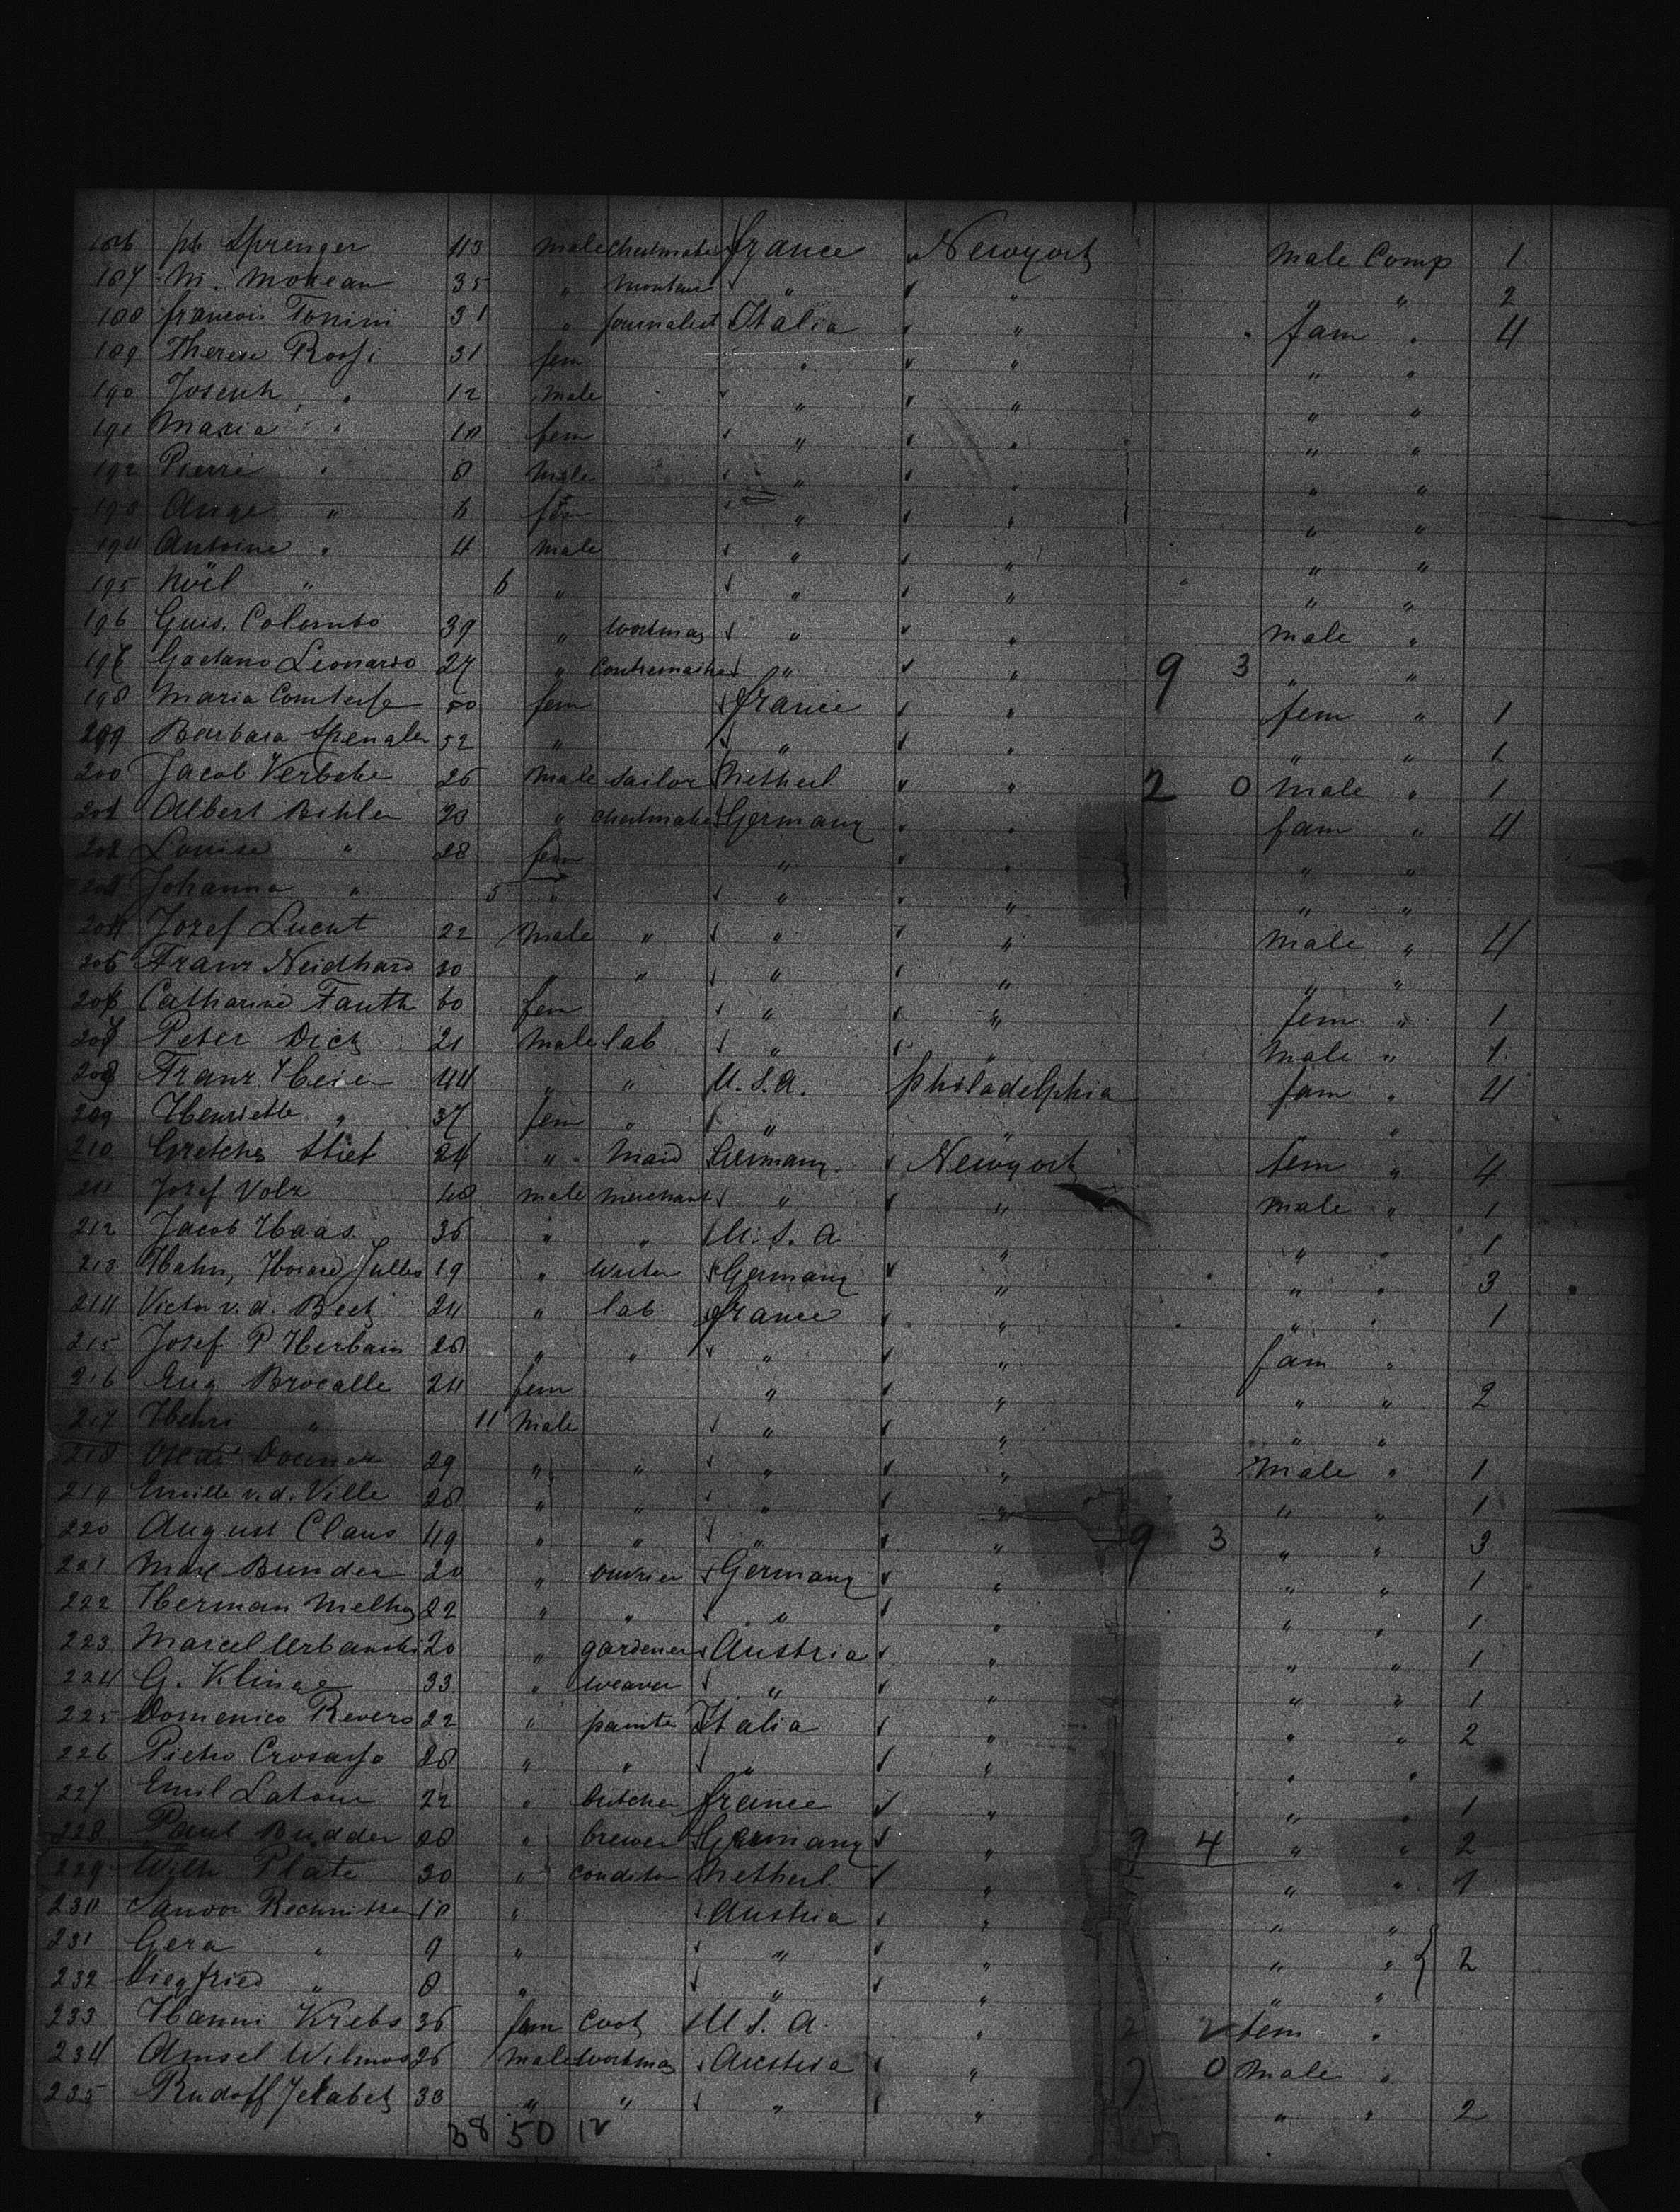 186 ph Sprenger 43 male france Newyork male Comp 1
187 M. Morean 35 " " " " " 2
188 francois Tonini 31 " journalist Italia " fam . 4
189 Therese Rossi 31 fem " " " "
190 Joseph " 12 male " " " "
191 Maria " 10 fem " " " "
192 Pierre " 8 male " " " "
193 Ange " 6 fem " " " "
194 Antoine " 4 male " " " "
195 Noël " 6 " " " " "
196 Guis. Colombo 39 " workman " " male "
197 Gaetano Leonardo 27 " contremaitre " " 9 3 " "
198 Maria 50 fem france " fem " 1
199 Barbara Spengler 52 " " " " " 1
200 Jacob Verboke 26 male sailor Netherl " 2 0 male " 1
201 Albert Bihler 28 " Germany " fam " 4
202 Louise " 28 fem " " " "
203 Johanna " 5 " " " " "
204 Jozef Lucut 22 male " " " male " 4
205 Franz Neidhard 30 " " " " " "
206 Catharine Fauth 60 fem " " fem " 1
207 Peter Dick 21 male lab " " male " 1
208 Franz Heier 44 " " U.S.A. philadelphia fam " 4
209 Henriette " 37 fem " " " "
210 Gretchen Stief 24 " maid Germany Newyork fem " 4
211 Josef Volz 48 male merchant " " male " 1
212 Jacob Haas 36 " " U.S.A " " " 1
213 Hahn, 19 " Germany " " " 3
214 Victor v.d. Beek 24 " lab france " " " 1
215 Josef P. Herbain 28 " " " " fam "
216 Eug Brocalle 24 fem " " " " 2
217 Henri " 11 male " " " "
218 29 " " " " male " 1
219 Emille v.d. Ville 28 " " " " " " 1
220 August Claus 49 " " " " 9 3 " " 3
221 Max Bunder 20 " ouvrier Germany " " " 1
222 Herman 22 " " " " " " 1
223 Marcel Urbanski 20 " gardener Austria " " " 1
224 G. Klinge 33 " weaver " " " " 1
225 Domenico Revero 22 " painte Italia " " " 2
226 Pietro Crosasso 28 " " " " " "
227 Emil Latour 22 " butcher france " " " 1
228 Paul Budder 28 " brewer Germany " 9 4 " " 2
229 Wilh Plate 30 " conditor Netherl " " " 1
230 Sandor Rechnitzer 10 " Austria " " "
231 Gera " 9 " " " " " 2
232 Siegfried " 8 " " " " "
233 Hanni Krebs 36 fem Cook U.S.A. " 2 fem "
234 Amsel Wilmos 26 male workman Austria " 2 0 male "
235 Rudolf 33 " " " " " " 2
38 50 12